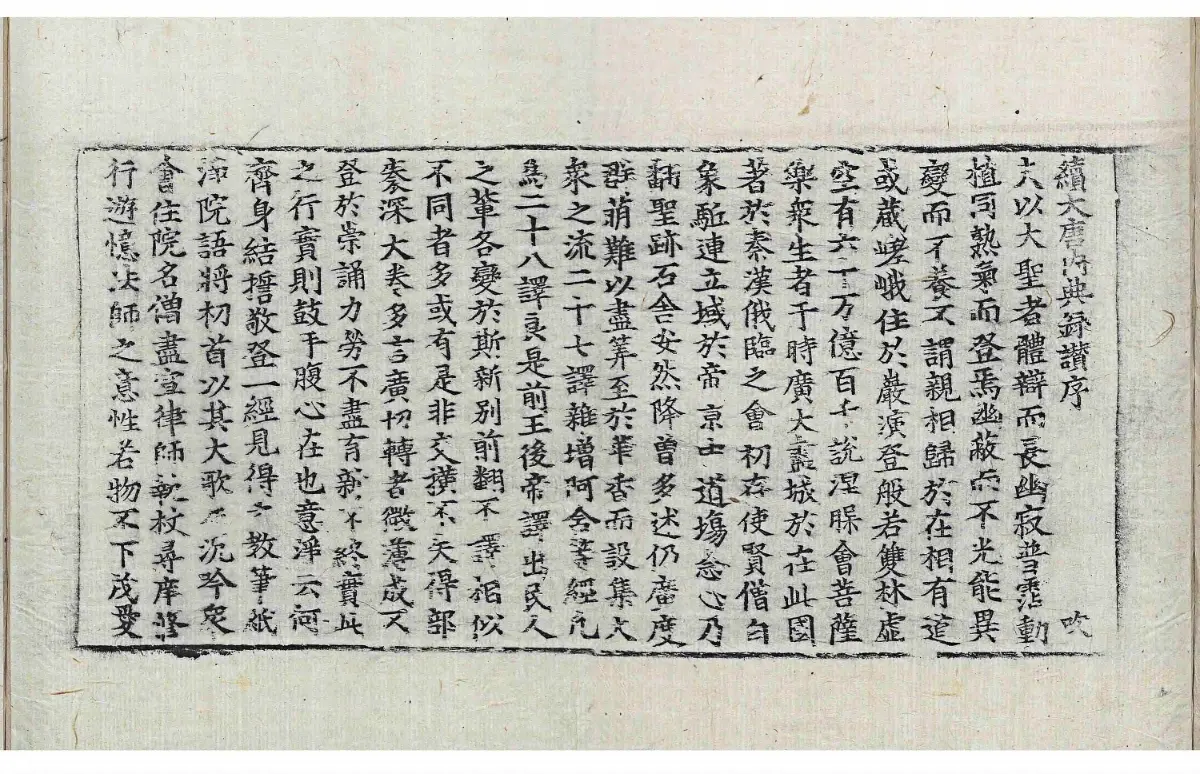 續大唐内典録讃序 吹
夫以大聖者體辯而長幽寂普霑動
植寫熱氣而登焉幽蔽而不光能異
變而不養不謂親相歸於在相有道
或蔵嵯峨住於巖演登般若雙林虚
空有六十万億百千說涅脲會菩薩
樂衆生者于時廣大盡城於在此國
著於秦漢俄臨之會初存使賢僧白
象駈連立域於帝京士道塲念心乃
翻聖跡石舍安然降曽多述仍廣度
群萌難以盡筭至於華香而設集大
衆之流二十七譯雜增阿含等經凡
爲二十八譯良是前王後帝譯出民人
之軰各變於斯新别前翻不譯相似
不同者多或有是非交撗不失得部
袠深大卷多言廣切轉者微薄成又
登於崇誦力勞不盡育新不終實此
之行實則鼓乎腹心在也意淨云何
齊身結撍敬登一經見得之教筆紙
海院語將初首以其大歌 沉吟衆
會住院名僧盡宣律師執杖尋庠
行游憶法師之意性若物不下茂愛